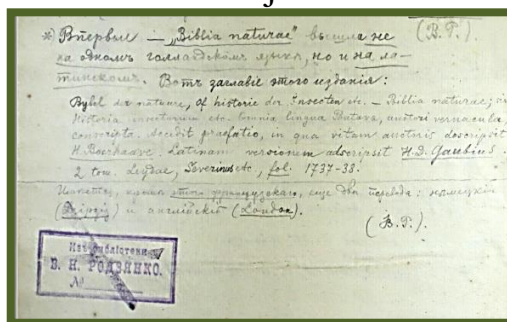 *) Впервые — „Biblia naturae" вышла не (В. Г.)
на одномъ голландскомъ языкѣ, но и на ла-
тинскомъ. Вотъ заглавіе этого изданія:
Bybel der nature, of historie der insecten etc. — Biblia naturae;
Historia insectorum etc. omnia lingua Batava, auctori vernacula,
conscripta. Accedit praefatio, in qua vitam auctoris descripsit
H. Boerhaave Latinam versionem adscripsit H. D. Gaubius
2 tom. Leydae, Severinus etc, fol. 1737-38.
кромѣ этого французскаго, еще два перевода: нѣмецкій
(Leipzig) и англійскій (London).
(В. Г.)
Изъ библіотеки
В. Н. РОДЗЯНКО.
№